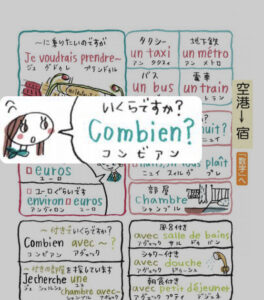 ～に乗りたいのですが
Je voudrais prendre～
ジュ ヴドゥレ プランドゥル
タクシー
un taxi
アン タクスィ
地下鉄
un métro
アン メトロ
バス
un bus
電車
un train
アン トラン
空港→宿
いくらですか？
Combien?
コンビアン
nuit?
plaît
ニュイ スィル ヴ プレ
「数字」へ
□euros
ユーロ
□ユーロぐらいです
environ □euros
アンヴィロン ユーロ
部屋
chambre
シャンブル
～付きでいくらですか？
Combien avec ～?
コンビアン アヴェック
～付きの部屋を探しています
Je cherche une
chambre avec～
風呂付き
avec salle de bains
アヴェック サル ドゥ バン
シャワー付き
avec douche
アヴェック ドゥーシュ
朝食付き
avec petit déjeuner
アヴェック プティ デジュネ